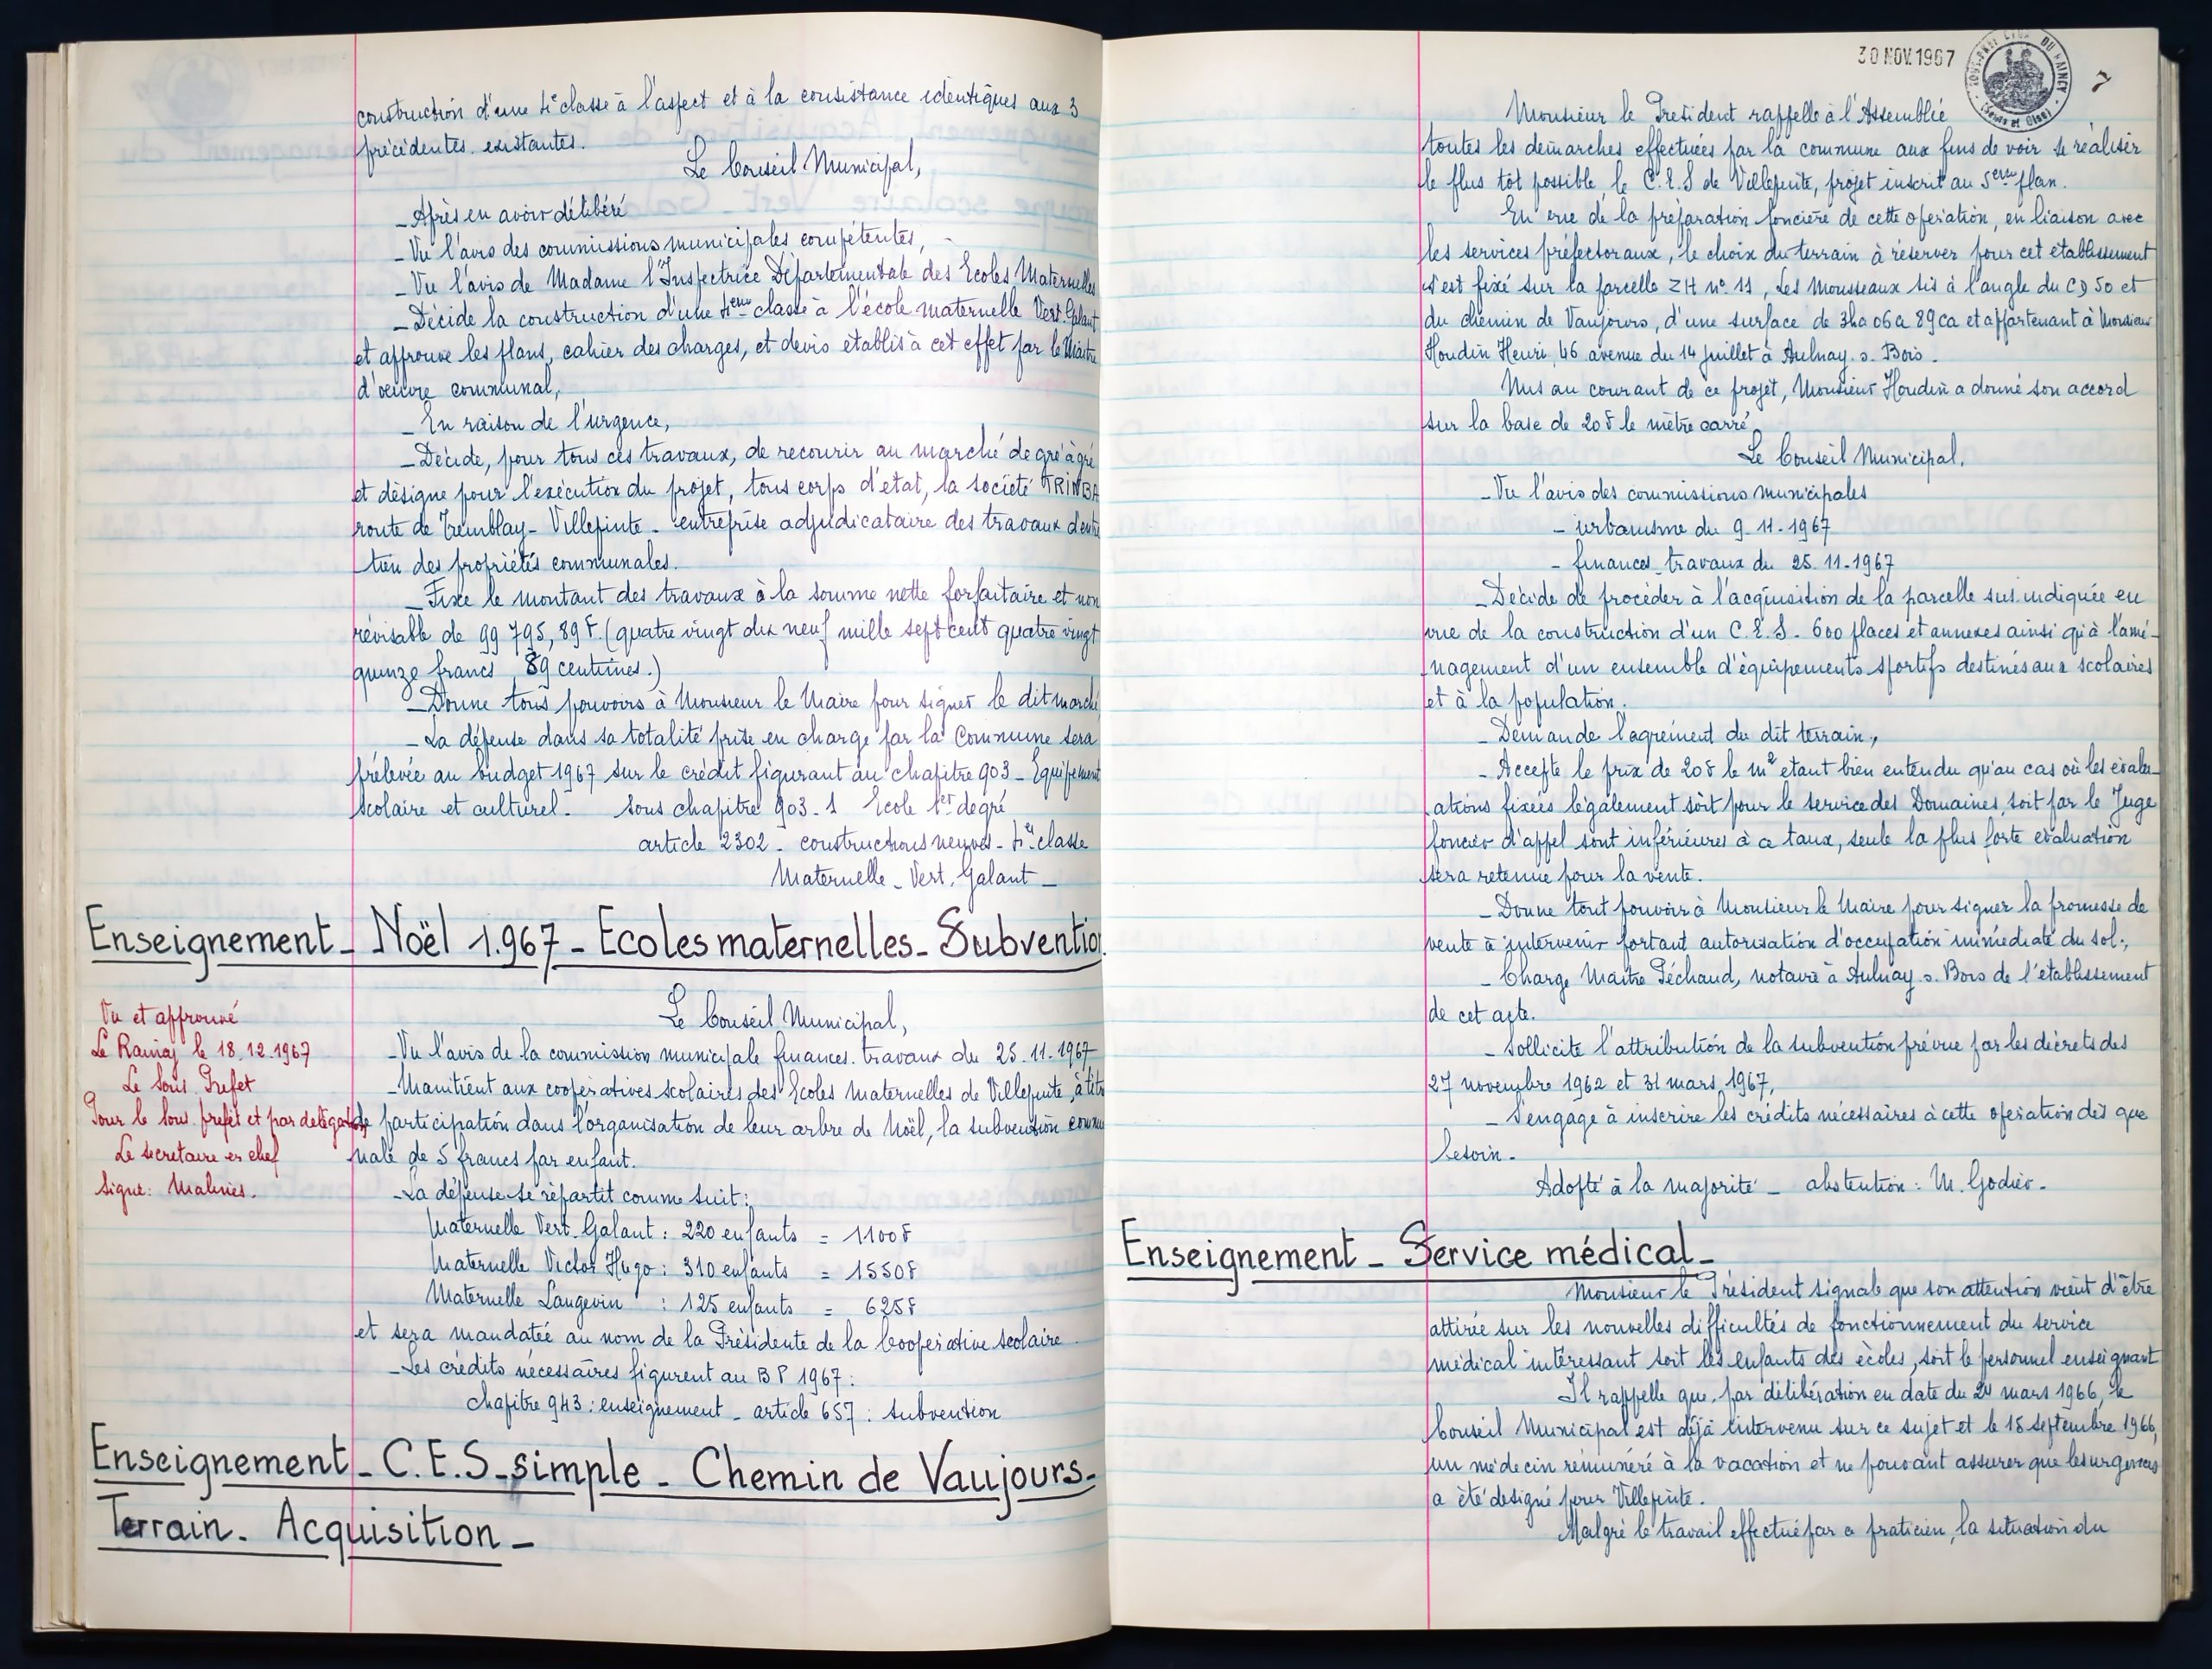 construction d'une 4e classe à l'aspect et à la consistance identiques aux 3
précédentes existantes.
Le Conseil Municipal,
_ Après en avoir délibéré
_ Vu l'avis des commissions municipales compétentes,
_ Vu l'avis de Madame l'Inspectrice Départementale des Ecoles Maternelles
_ Décide la construction d'une 4eme classe à l'école maternelle Vert. Galant
et approuve les plans, cahier des charges, et devis établis à cet effet par le Maître
d'oeuvre communal,
_ En raison de l'urgence,
_ Décide, pour tous ces travaux, de recourir au marché de gré à gré
et désigne pour l'exécution du projet, tous corps d'état, la société TRINBA
route de Tremblay - Villepinte - entreprise adjudicataire des travaux d'entre
tien des propriétés communales.
_ Fixe le montant des travaux à la somme nette forfaitaire et non
révisable de 99 795, 89 F. (quatre vingt dix neuf mille sept cent quatre vingt
quinze francs, 89 centimes.)
_ Donne tous pouvoirs à Monsieur le Maire pour signer le dit marché
_ La dépense dans sa totalité prise en charge par la Commune sera
prélevée au budget 1967 sur le crédit figurant au chapitre 903 - Equipement
scolaire et culturel - sous chapitre 903-1 Ecole 1er degré
article 2302 - constructions neuves - 4e classe
Maternelle - Vert. Galant -
Enseignement - Noël 1.967 - Ecoles maternelles - Subvention
Le Conseil Municipal,
Vu et approuvé
Le Raincy le 18.12.1967
Le Sous. Préfet
Pour le sous. préfet et par délégation
Le secrétaire en chef
signé:
_ Vu l'avis de la commission municipale finances. travaux du 25.11.1967
_ Maintient aux coopératives scolaires des Ecoles Maternelles de Villepinte, à titre
de participation dans l'organisation de leur arbre de Noël, la subvention commu
nale de 5 francs par enfant.
_ La dépense se répartit comme suit:
Maternelle Vert. Galant : 220 enfants = 1100 F
Maternelle Victor Hugo : 310 enfants = 1550 F
Maternelle Langevin : 125 enfants = 625 F
et sera mandatée au nom de la Présidente de la Coopérative scolaire.
_ Les crédits nécessaires figurent au B P 1967 :
chapitre 943 : enseignement - article 657 : subvention
Enseignement - C.E.S. simple - Chemin de Vaujours -
Terrain - Acquisition -
30 NOV. 1967
SOUS-PREFECTURE DU RAINCY
(Seine et Oise)
7
Monsieur le Président rappelle à l'Assemblée
toutes les démarches effectuées par la commune aux fins de voir se réaliser
le plus tôt possible le C.E.S de Villepinte, projet inscrit au 5eme plan.
En vue de la préparation foncière de cette opération, en liaison avec
les services préfectoraux, le choix du terrain à réserver pour cet établissement
s'est fixé sur la parcelle ZH n° 11, Les Mousseaux sis à l'angle du CD 50 et
du chemin de Vaujours, d'une surface de 3ha 06a 89ca et appartenant à Monsieur
Houdin Henri, 46 avenue du 14 juillet à Aulnay. s. Bois.
Mis au courant de ce projet, Monsieur Houdin a donné son accord
sur la base de 20 F le mètre carré.
Le Conseil Municipal,
_ Vu l'avis des commissions municipales
- urbanisme du 9-11-1967
- finances. travaux du 25.11-1967
_ Décide de procéder à l'acquisition de la parcelle sus. indiquée en
vue de la construction d'un C.E.S. 600 places et annexes ainsi qu'à l'amé-
nagement d'un ensemble d'équipements sportifs destinés aux scolaires
et à la population.
_ Demande l'agrément du dit terrain,
_ Accepte le prix de 20 F le m2 étant bien entendu qu'au cas où les évalu-
ations fixées légalement soit pour le service des Domaines, soit par le Juge
foncier d'appel sont inférieures à ce taux, seule la plus forte évaluation
sera retenue pour la vente.
_ Donne tout pouvoir à Monsieur le Maire pour signer la promesse de
vente à intervenir portant autorisation d'occupation immédiate du sol,
_ Charge Maître Péchaud, notaire à Aulnay. s. Bois de l'établissement
de cet acte.
_ sollicite l'attribution de la subvention prévue par les décrets des
27 novembre 1962 et 31 mars 1967,
_ S'engage à inscrire les crédits nécessaires à cette opération dès que
besoin.
Adopté à la majorité - abstention : M. Godier.
Enseignement - Service médical -
Monsieur le Président signale que son attention vient d'être
attirée sur les nouvelles difficultés de fonctionnement du service
médical intéressant soit les enfants des écoles, soit le personnel enseignant
Il rappelle que, par délibération en date du 24 mars 1966, le
Conseil Municipal est déjà intervenu sur ce sujet et le 15 septembre 1966,
un médecin rémunéré à la vacation et ne pouvant assurer que les urgences
a été désigné pour Villepinte.
Malgré le travail effectué par ce praticien, la situation du